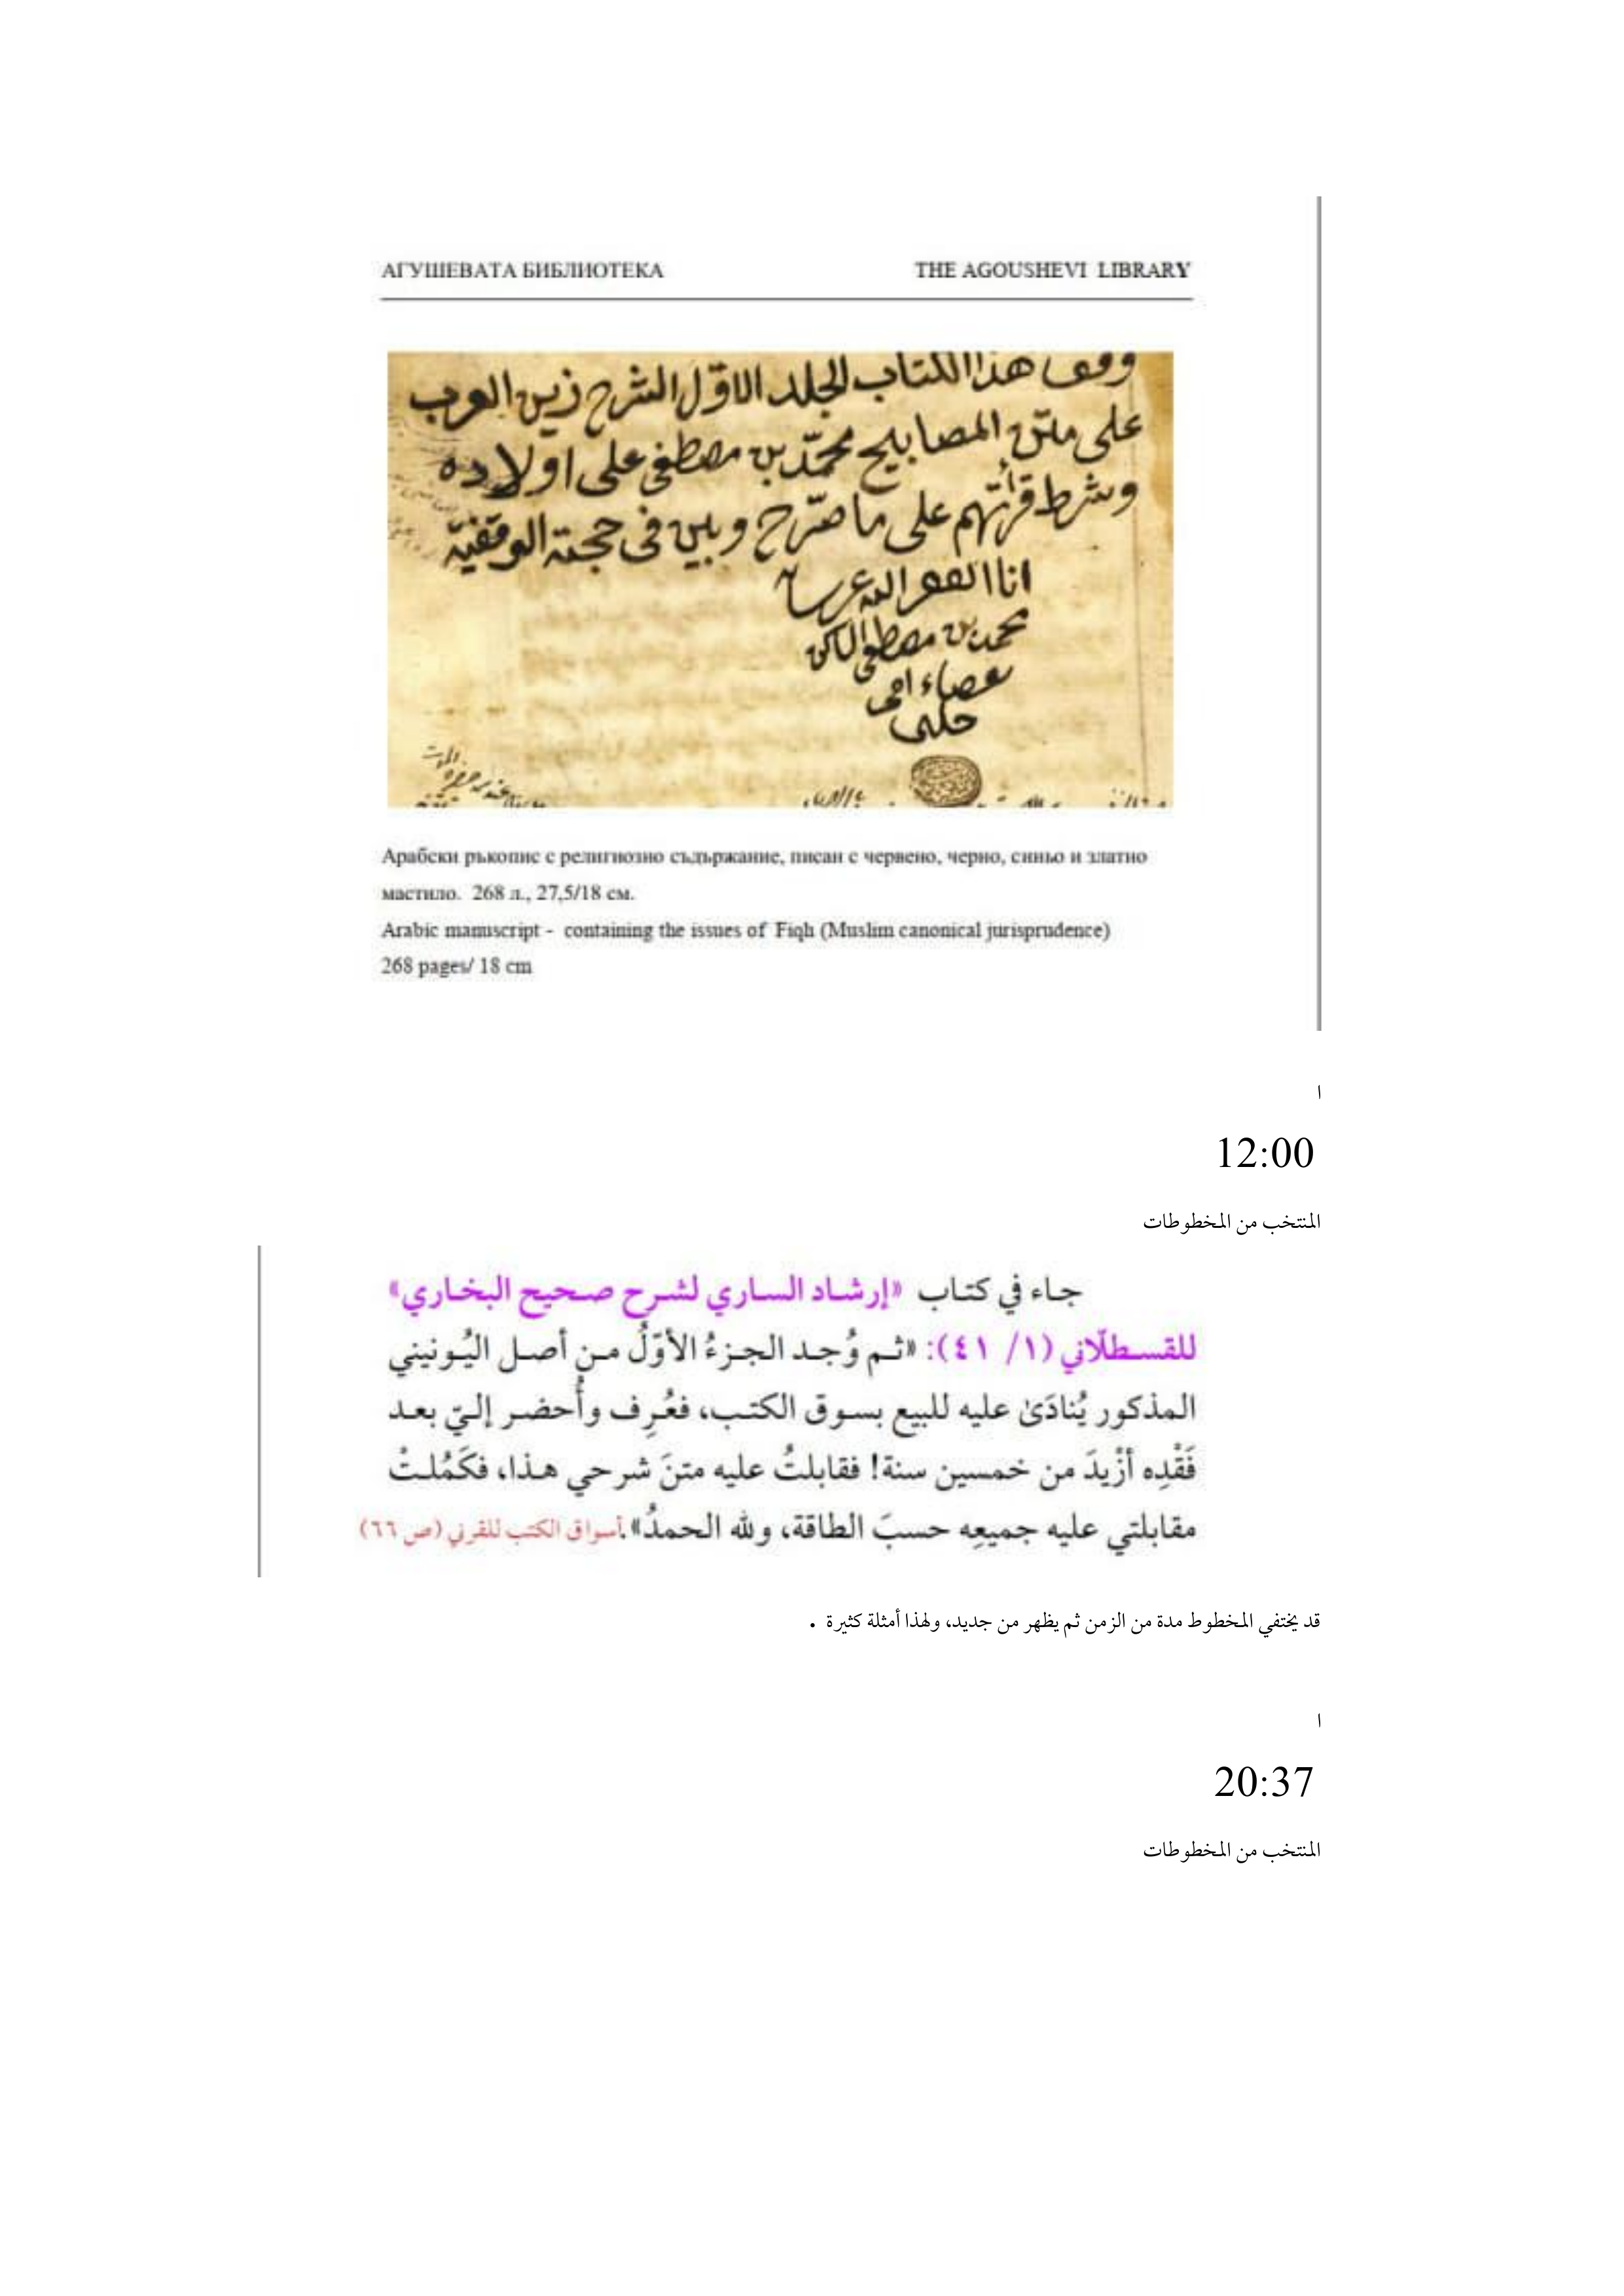 АГУШЕВАТА БИБЛИОТЕКА THE AGOUSHEVI LIBRARY
وقف هذا الكتاب الجلد الاوّل الشرح زين العرب
على متن المصابيح محمّد بن مصطفى على اولاده
وشرط قرأتهم على ما صرّح وبين فى حجة الوقفيّة
انا الفقير
محمد بن مصطفى
Арабски ръкопис с религиозно съдържание, писан с червено, черно, синьо и златно
мастило. 268 л., 27,5/18 см.
Arabic manuscript - containing the issues of Fiqh (Muslim canonical jurisprudence)
268 pages/ 18 cm
ا
12:00
المنتخب من المخطوطات
جاء في كتاب «إرشاد الساري لشرح صحيح البخاري»
للقسطلّاني (١/ ٤١): «ثم وُجد الجزءُ الأوّلُ من أصل اليُونيني
المذكور يُنادَىٰ عليه للبيع بسوق الكتب، فعُرِف وأُحضر إليّ بعد
فَقْدِه أزْيدَ من خمسين سنة! فقابلتُ عليه متنَ شرحي هذا، فكَمُلتْ
مقابلتي عليه جميعِه حسبَ الطاقة، ولله الحمدُ». أسواق الكتب للقرني (ص ٦٦)
قد يختفي المخطوط مدة من الزمن ثم يظهر من جديد، ولهذا أمثلة كثيرة .
ا
20:37
المنتخب من المخطوطات